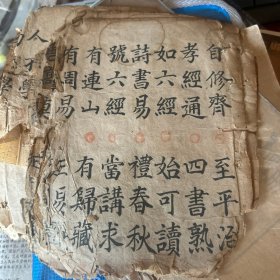 自修齊 至平治
孝經通 四書熟
如六經 始可讀
詩書易 禮春秋
號六經 當講求
有連山 有歸藏
有周易 易
人